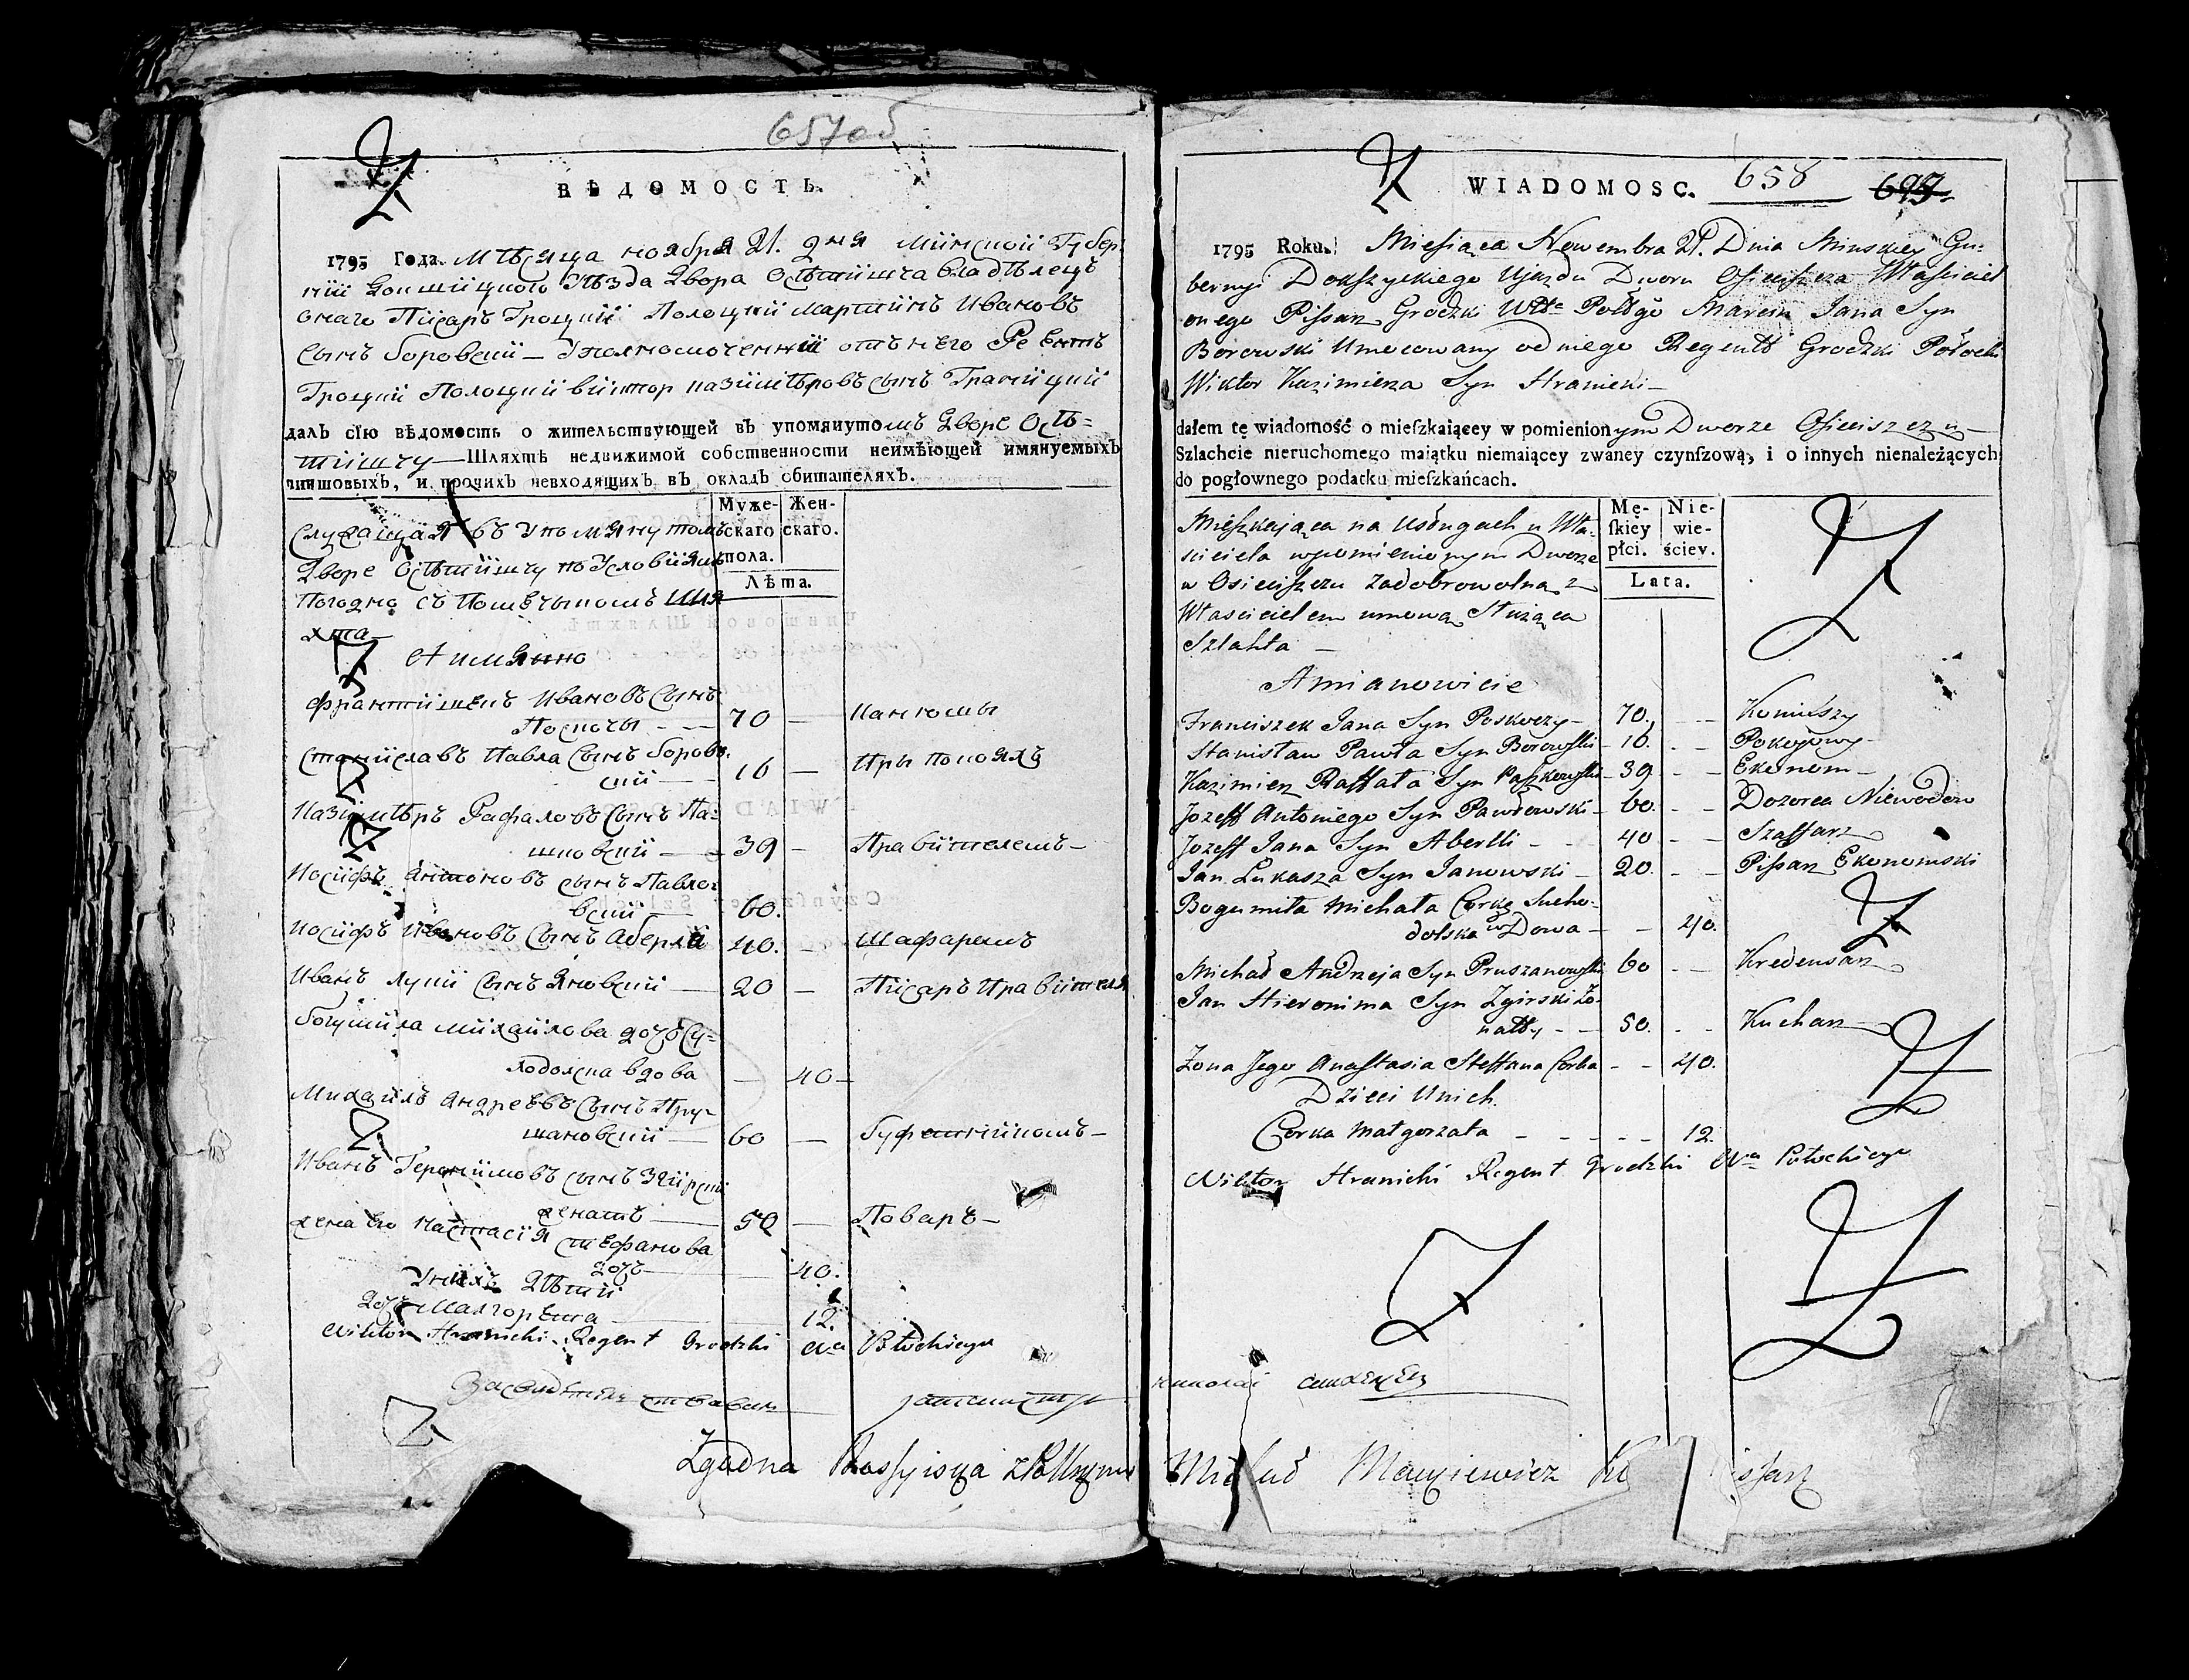 657об
ВѢДОМОСТЬ.
1795 Года. Мѣсяца ноября 21. дня Минской Губер:
нїи Докшицкого Уѣзда Двора Осѣтища владѣлецъ
онаго Писаръ Гроцкїй Полоцкїй Мартинъ Ивановъ
сынъ Боровскїй — Уполномоченный отъ него Реентъ
Гроцкїй Полоцкїй Виктор Казимѣровъ сынъ Границкїй
далъ сїю вѣдомость о жительствующей въ упомянутомъ Дворе Осѣ=
тищу — Шляхтѣ недвижимой собственности неимѣющей имянуемыхъ
чиншовыхъ, и прочихъ невходящихъ въ окладъ обитателяхъ.
Муже- Жен-
скаго скаго.
пола.
Лѣта.
Служащая въ упомянутомъ
Дворе Осѣтищу по условиямъ
Погодно съ Помѣчыкомъ Шля
хта —
А имянно
Франтишекъ Ивановъ сынъ
Поскочы - - — 70 — Канюшы
Станиславъ Павла сынъ Боров.
скїй — 16 — При покояхъ
Казимѣръ Рафаловъ сынъ Па=
шковскїй — 39 — Правителемъ —
Иосифъ Антоновъ сынъ Павло:
вскїй — 60.
Иосифъ Ивановъ сынъ Аберлй 40. — Шафаремъ
Иванъ Луки сынъ Яновскїй — 20 — Писаръ Правителя
Богумила Михайлова дочь Су=
ходолска вдова — 40 —
Михайлъ Андреевъ сынъ Пру=
шановскїй — 60 — Буфетчикомъ —
Иванъ Геронимовъ сынъ Згирскїй
женатъ — 50 — Поваръ —
Жена Его Настасїя Стефанова
дочь — 40.
У нихъ Дѣти
Дочь Малгорета 12.
Wiktor Hranicki Regent Grodzki Wa Połockiego
Zgadna Rossyiska z Polskym
WIADOMOSC. 658 697.
1795 Roku. Miesiąca Nowembra 21. Dnia Minskiey Gu=
bernyi Dokszyckiego Ujazdu Dworu Osieciszcza Własciciel
onego Pissarz Grodzki Wdta Połłgo Marcin Jana Syn
Borowski Umocowany od niego Regentt Grodzki Połocki
Wiktor Kazimierza Syn Hranicki —
dałem tę wiadomość o mieſzkaiącey w pomienionym Dworze Osieciszczu —
Szlachcie nieruchomego maiątku niemaiącey zwaney czynſzową, i o innych nienależących
do pogłownego podatku mieſzkańcach.
Mę- Nie-
ſkiey wie-
płci. ściey.
Lata.
Mieszkająca na Usługach u Wła=
sciciela wpomienionym Dworze
w Osieciszczu zadobrowolną z
Własicielem umową Służąca
Szlahta —
A mianowicie
Franciszek Jana Syn Poskoczy — 70. - — Koniuszy
Stanisław Pawła Syn Borowski — 16. - — Pokojowy —
Kazimierz Raffała Syn Paszkowski — 39 - — Ekonom —
Jozeff Antoniego Syn Pawłowski — 60. - — Dozorca Niewodow
Jozeff Jana Syn Aberlli - - 40 - — Szaffarz
Jan Łukasza Syn Janowski — 20. - — Pissarz Ekonomski
Bogumiła Michała Corka Sucho=
dolska wDowa — - 40.
Michał Andrzeja Syn Pruszanowski 60 - — Kredensarz
Jan Hieronima Syn Zgirski Żo=
natty - — 50. - - Kucharz
Żona Jego Anastasia Steffana Corka - - 40.
Dzieci Unich.
Corka Małgorzata - - - - - 12.
Wiktor Hranicki Regent Grodzki Wa Połockiego
Michał Macyiewicz